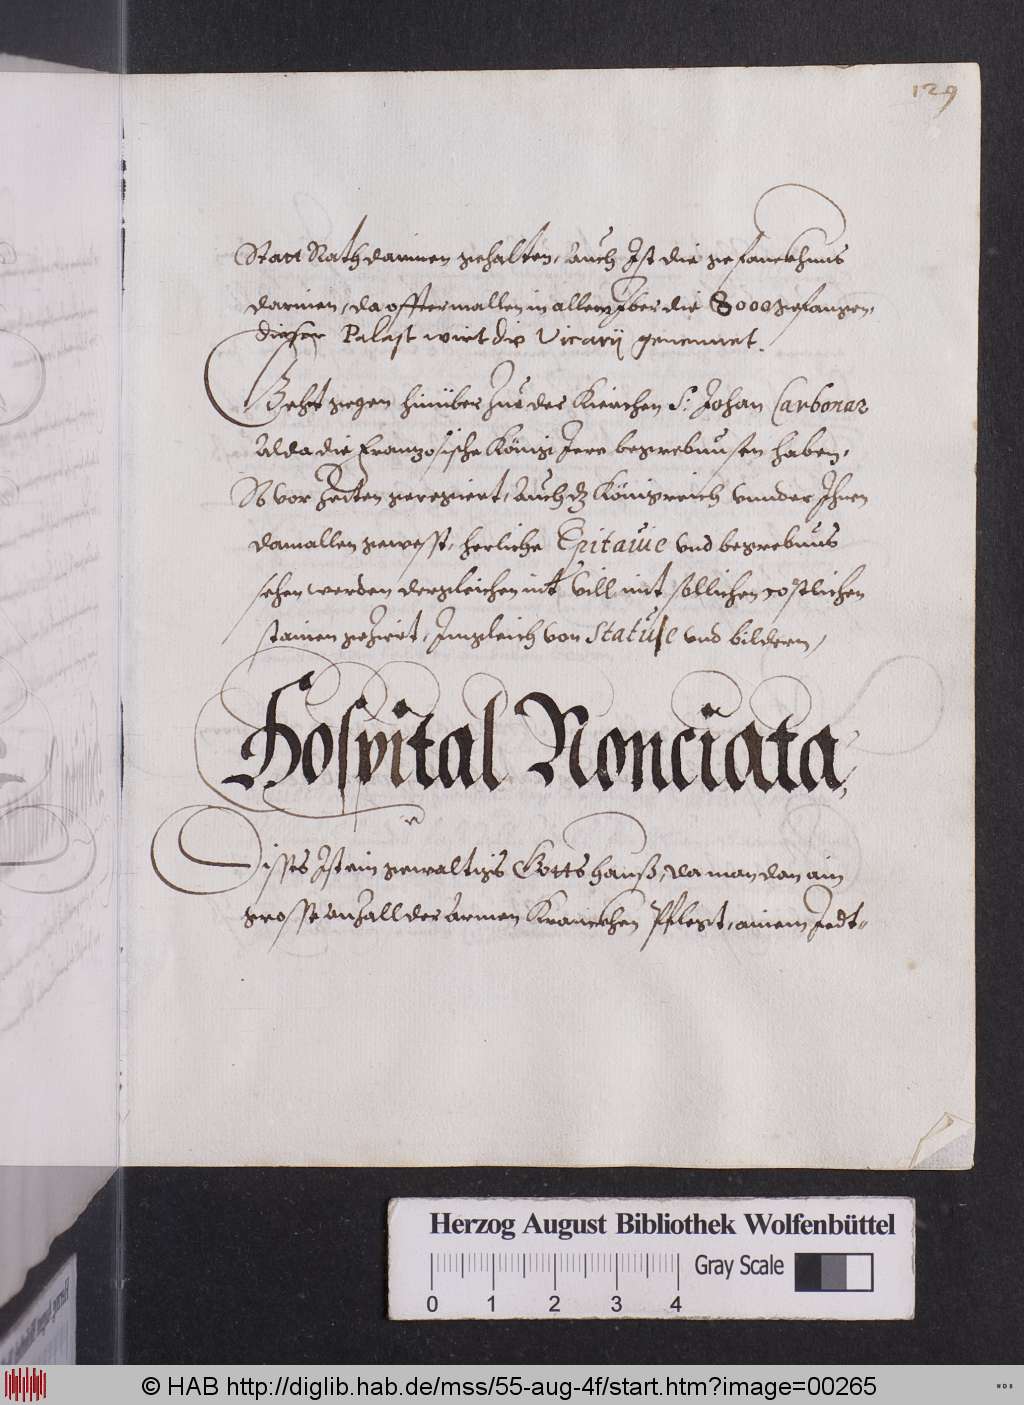 129
Statt Rath darinnen gehalten, Auch Ist die gefanckhnus
darinen, da offtermallen in allem yber die 8000 gefangen,
dieser Palast wirt die Vicarÿ genennet.
Geht gegen hinüber Zue der Kierchen S: Johan Carbonar
Alda die Franzosische Könige Iere begrebnusen haben,
So vor Zeiten geregiert, Auch dz Königreich vnnder Ihnen
damallen gewesst, herliche Epitauie vnd begrebnus
sehen werden dergleichen nit vill mit sollichen costlichen
stainen geziert, Imgleich von Statuse vnd bildern,
Hospital Nonciata,
Disses Ist ein gewaltigs Gotts hauß, da man dan ain
grosse anzall der Armen Kranckhen Pflegt, ainem Jedt-
Herzog August Bibliothek Wolfenbüttel
Gray Scale
0 1 2 3 4
© HAB http://diglib.hab.de/mss/55-aug-4f/start.htm?image=00265